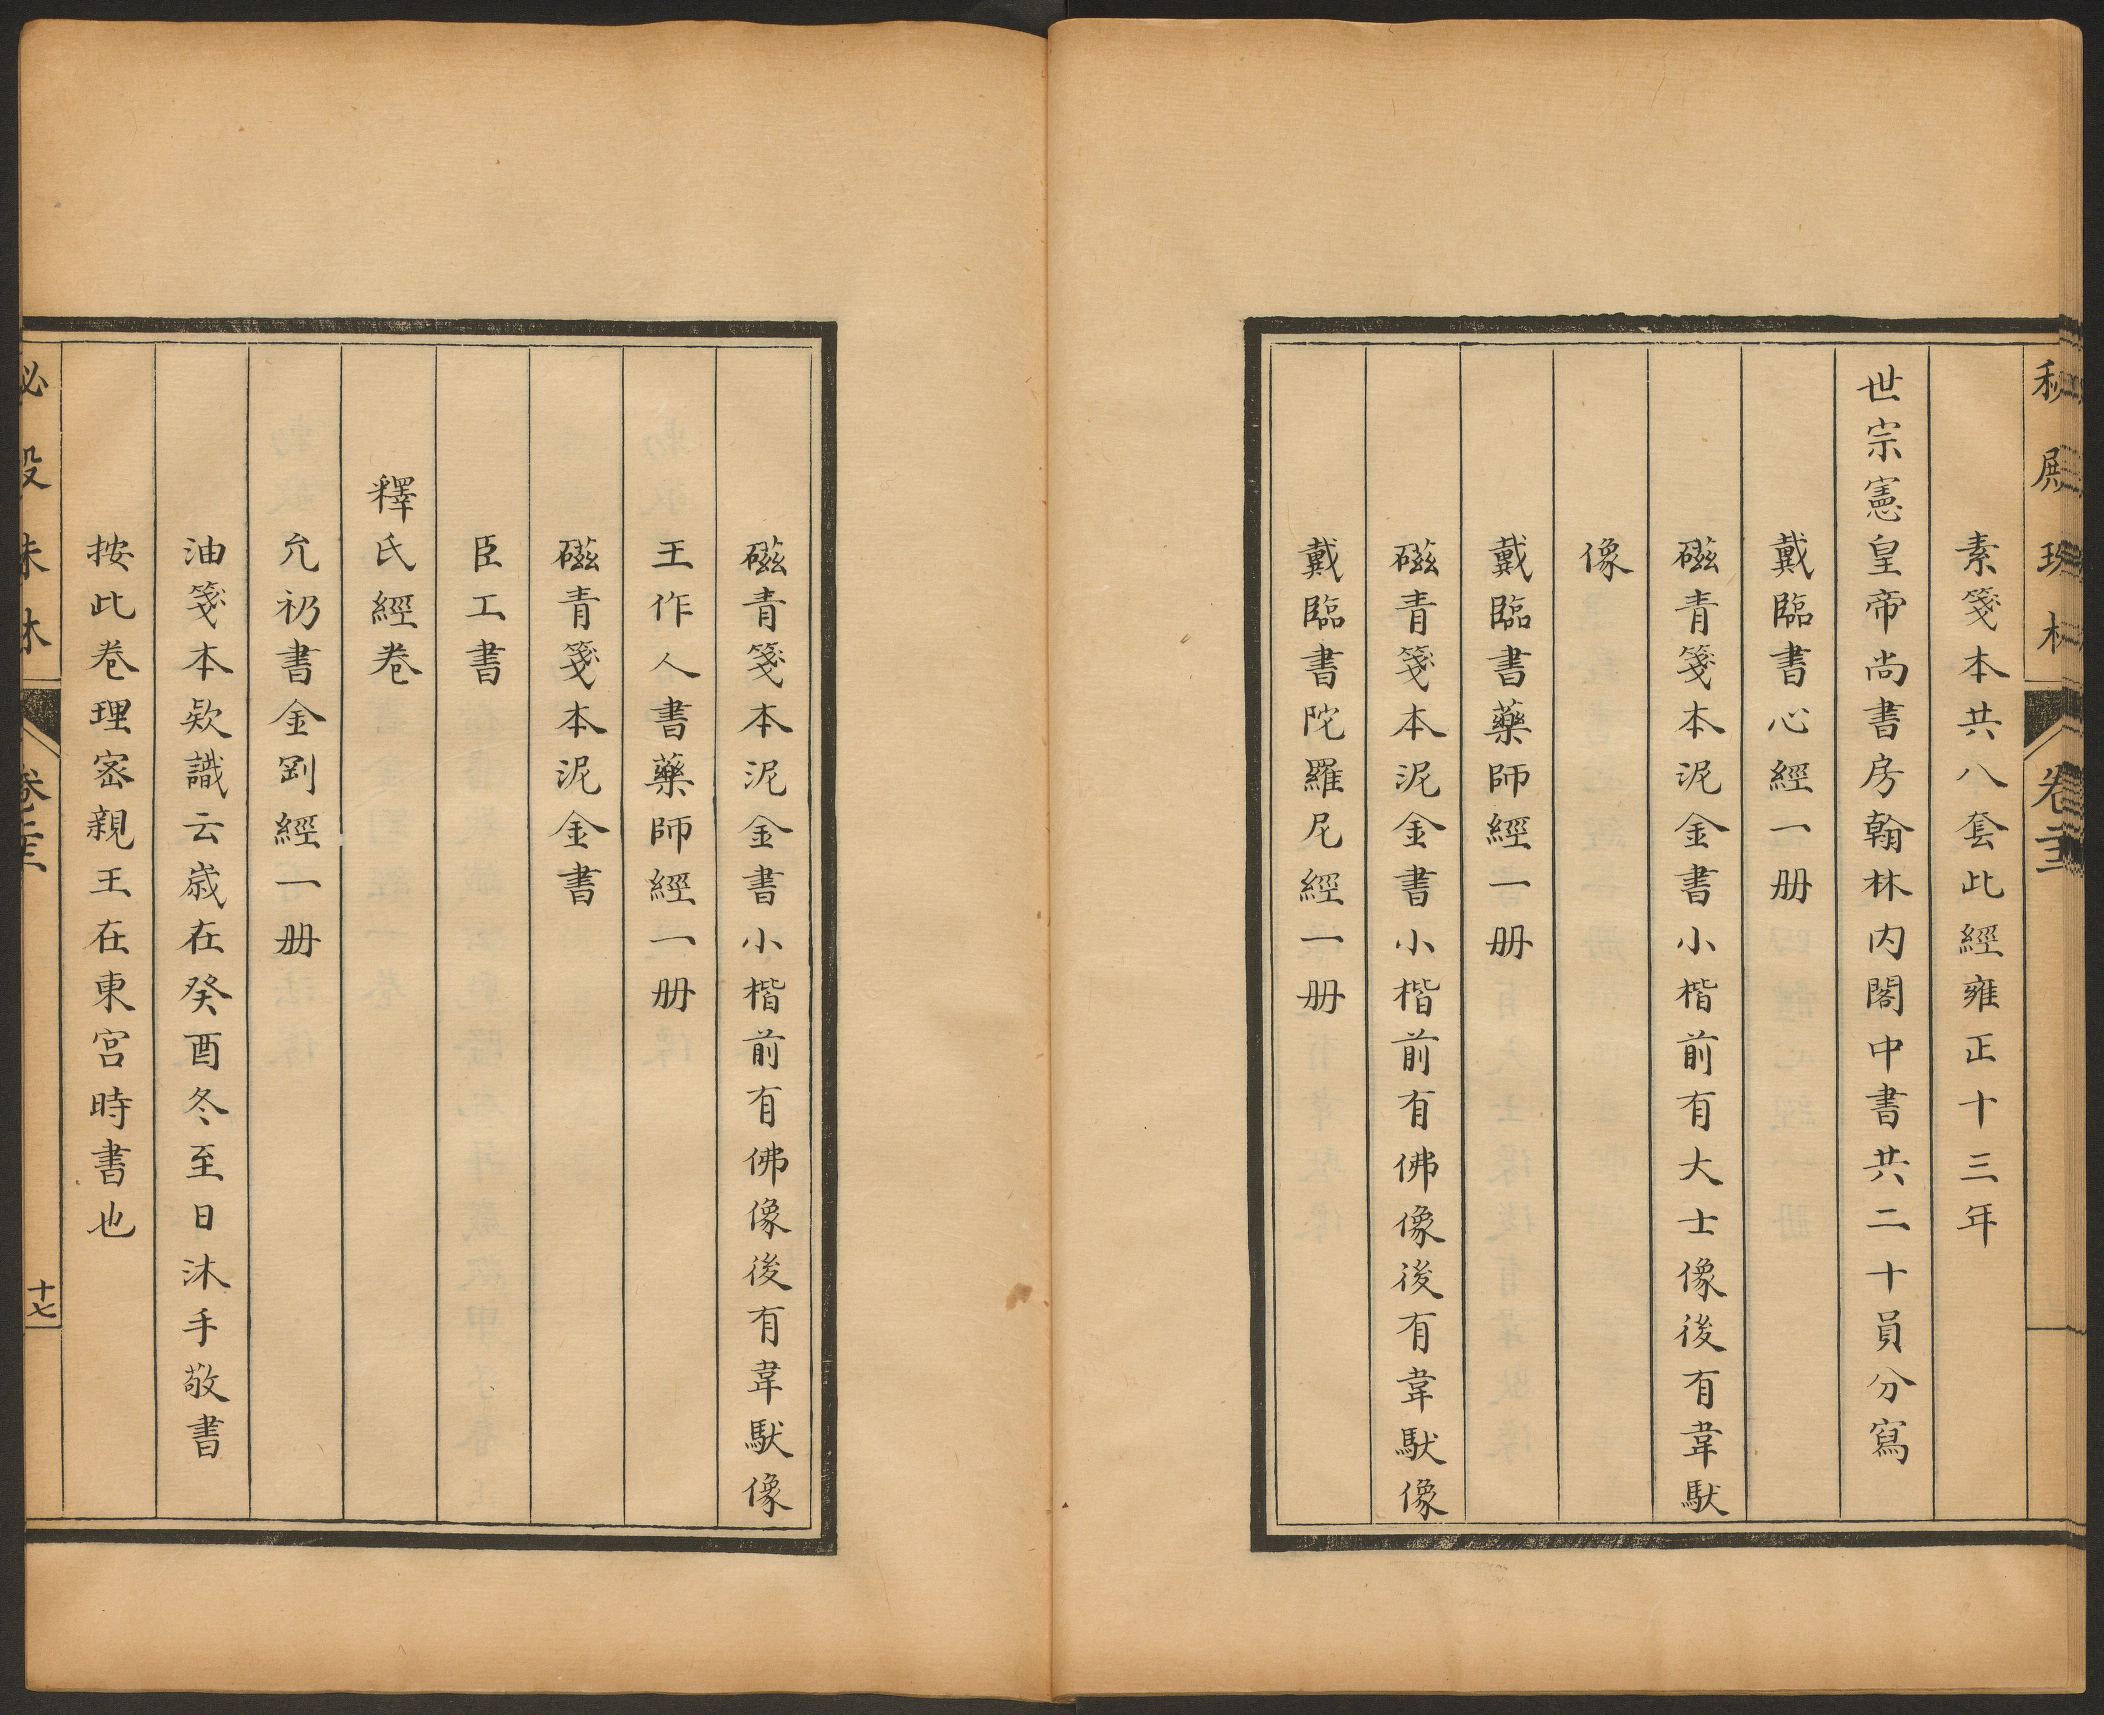 秘殿珠林
卷二十三
素箋本共八套此經雍正十三年
世宗憲皇帝尚書房翰林内閣中書共二十員分寫
戴臨書心經一册
磁青箋本泥金書小楷前有大士像後有韋馱
像
戴臨書藥師經一册
磁青箋本泥金書小楷前有佛像後有韋馱像
戴臨書陀羅尼經一册
磁青箋本泥金書小楷前有佛像後有韋馱像
王作人書藥師經一册
磁青箋本泥金書
臣工書
釋氏經卷
允礽書金剛經一册
油箋本欵識云歳在癸酉冬至日沐手敬書
按此卷理宻親王在東宮時書也
秘殿珠林
卷二十三
十七